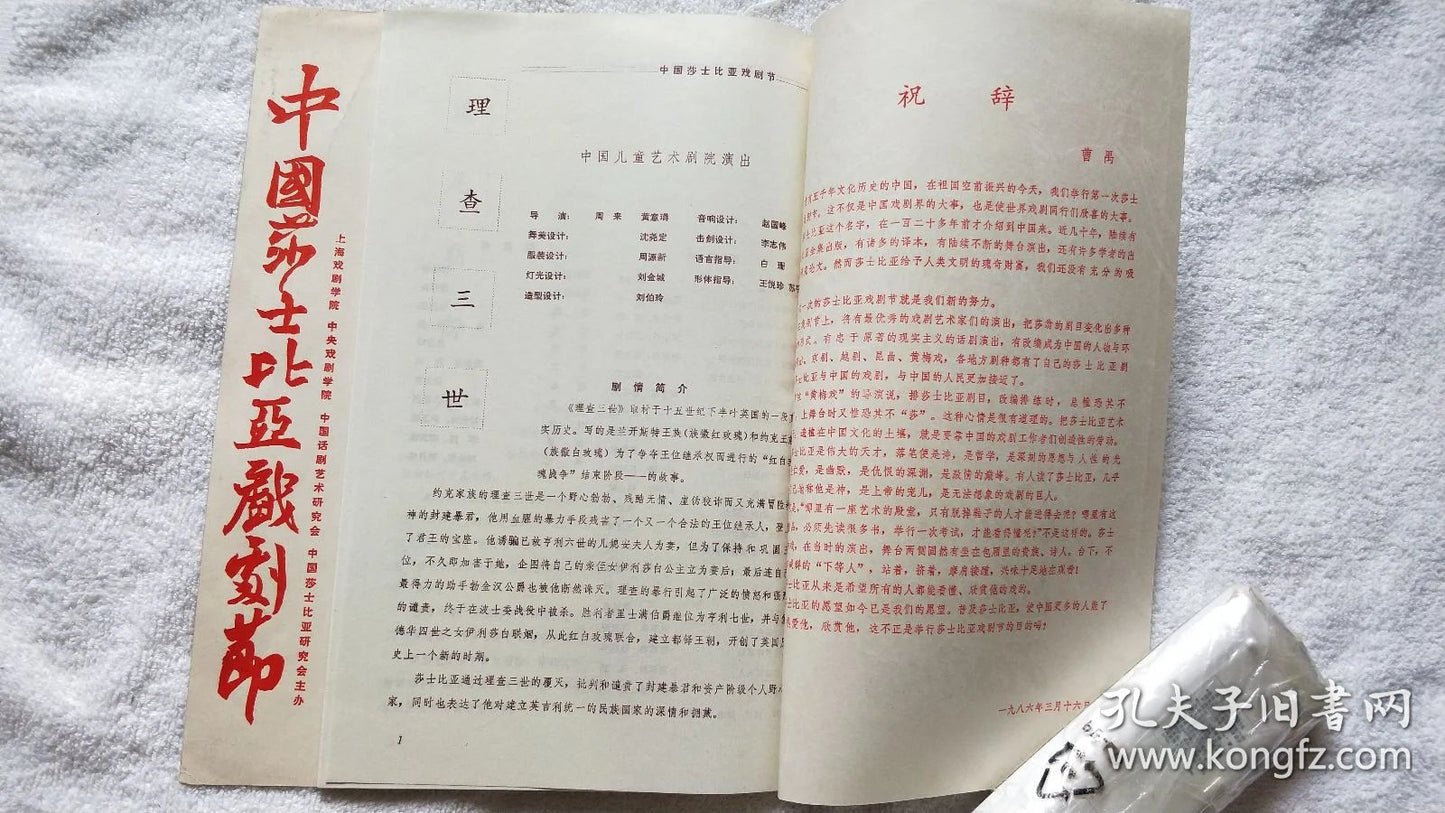 中國莎士比亞戲劇節
上海戏剧学院 中央戏剧学院 中国话剧艺术研究会 中国莎士比亚研究会主办
中国莎士比亚戏剧节
理查三世
中国儿童艺术剧院演出
导 演: 周 来 黄意璘 音响设计: 赵国峰
舞美设计: 沈尧定 击剑设计: 李志伟
服装设计: 周源新 语言指导: 白 珊
灯光设计: 刘金城 形体指导: 王悦珍
造型设计: 刘伯玲
剧情简介
《理查三世》取材于十五世纪下半叶英国的一段
实历史。写的是兰开斯特王族(族徽红玫瑰)和约克王
(族徽白玫瑰)为了争夺王位继承权而进行的“红白
瑰战争”结束阶段——的故事。
约克家族的理查三世是一个野心勃勃、残酷无情、虚伪狡诈而又充满冒险
神的封建暴君,他用血腥的暴力手段残害了一个又一个合法的王位继承人,登
了君王的宝座。他诱骗已故亨利六世的儿媳安夫人为妻,但为了保持和巩固
位,不久即加害于她,企图将自己的亲侄女伊利莎白公主立为妻后;最后连自
最得力的助手勃金汉公爵也被他断然诛灭。理查的暴行引起了广泛的愤怒和强
的谴责,终于在波士委战役中被杀。胜利者里士满伯爵继位为亨利七世,并与
德华四世之女伊利莎白联姻,从此红白玫瑰联合,建立都铎王朝,开创了英国
史上一个新的时期。
莎士比亚通过理查三世的覆灭,批判和谴责了封建暴君和资产阶级个人野
家,同时也表达了他对建立英吉利统一的民族国家的深情和拥戴。
1
祝 辞
曹禺
五千年文化历史的中国,在祖国空前振兴的今天,我们举行第一次莎士
剧节,这不仅是中国戏剧界的大事,也是使世界戏剧同行们欣喜的大事。
士比亚这个名字,在一百二十多年前才介绍到中国来。近几十年,陆续有
亚全集出版,有诸多的译本,有陆续不断的舞台演出,还有许多学者的出
论文。然而莎士比亚给予人类文明的瑰奇财富,我们还没有充分的吸
一次的莎士比亚戏剧节就是我们新的努力。
戏剧节上,将有最优秀的戏剧艺术家们的演出,把莎翁的剧目变化出多种
形式。有忠于原著的现实主义的话剧演出,有改编成为中国的人物与环
京剧、越剧、昆曲、黄梅戏,各地方剧种都有了自己的莎士比亚剧
士比亚与中国的戏剧,与中国的人民更加接近了。
“黄梅戏”的导演说,排莎士比亚剧目,改编排练时,总惟恐其不
上舞台时又惟恐其不“莎”。这种心情是很有道理的。把莎士比亚艺术
植在中国文化的土壤,就是要靠中国的戏剧工作者们创造性的劳动。
士比亚是伟大的天才,落笔便是诗,是哲学,是深刻的思想与人性的光
爱,是幽默,是仇恨的深渊,是激情的巅峰。有人读了莎士比亚,几乎
称他是神,是上帝的宠儿,是无法想象的戏剧的巨人。
“那里有一座艺术的殿堂,只有脱掉鞋子的人才能进得去呢?哪里有这
品,必须先读很多书,举行一次考试,才能看得懂呢?”不是这样的。莎士
在当时的演出,舞台两侧固然有坐在包厢里的贵族、诗人。台下,不
的“下等人”,站着,挤着,摩肩接踵,兴味十足地在观看!
士比亚从来是希望所有的人都能看懂、欣赏他的戏的。
比亚的愿望如今已是我们的愿望。普及莎士比亚,使中国更多的人能了
爱他,欣赏他,这不正是举行莎士比亚戏剧节的目的吗?
一九八六年三月十六
孔夫子旧书网
www.kongfz.com